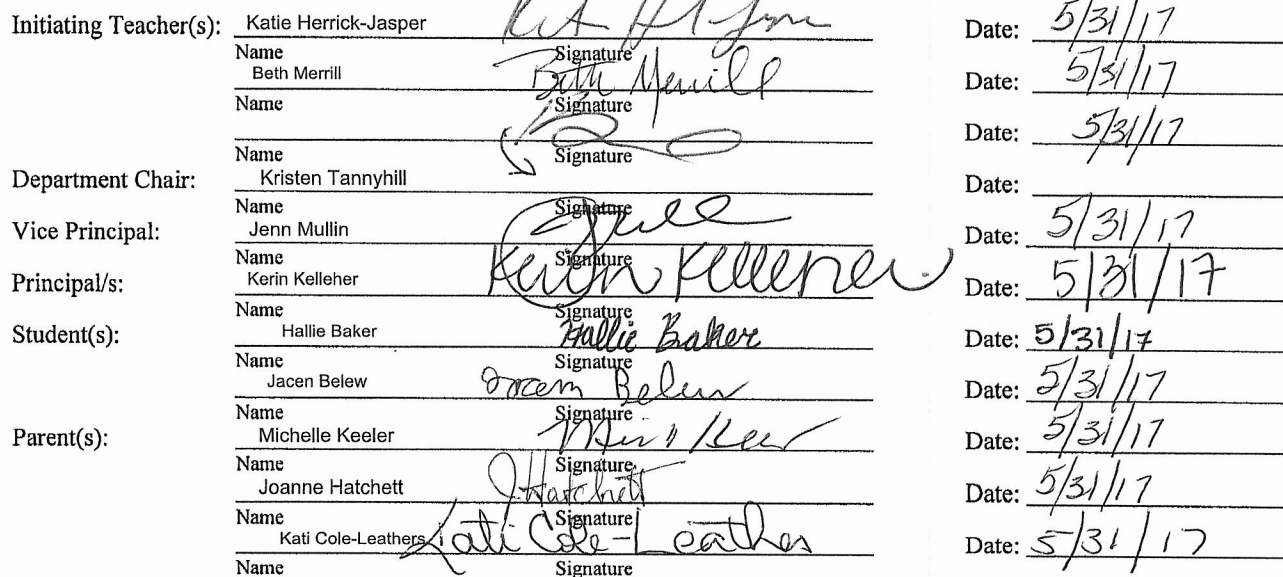 Initiating Teacher(s): Katie Herrick-Jasper Date: 5/31/17
Name Signature
Beth Merrill Beth Merrill Date: 5/31/17
Name Signature
Date: 5/31/17
Name Signature
Department Chair: Kristen Tannyhill Date:
Name Signature
Vice Principal: Jenn Mullin Date: 5/31/17
Name Signature
Principal/s: Kerin Kelleher Kerin Kelleher Date: 5/31/17
Name Signature
Student(s): Hallie Baker Hallie Baker Date: 5/31/17
Name Signature
Jacen Belew Jacen Belew Date: 5/31/17
Name Signature
Parent(s): Michelle Keeler Date: 5/31/17
Name Signature
Joanne Hatchett J Hatchett Date: 5/31/17
Name Signature
Kati Cole-Leathers Kati Cole-Leathers Date: 5/31/17
Name Signature